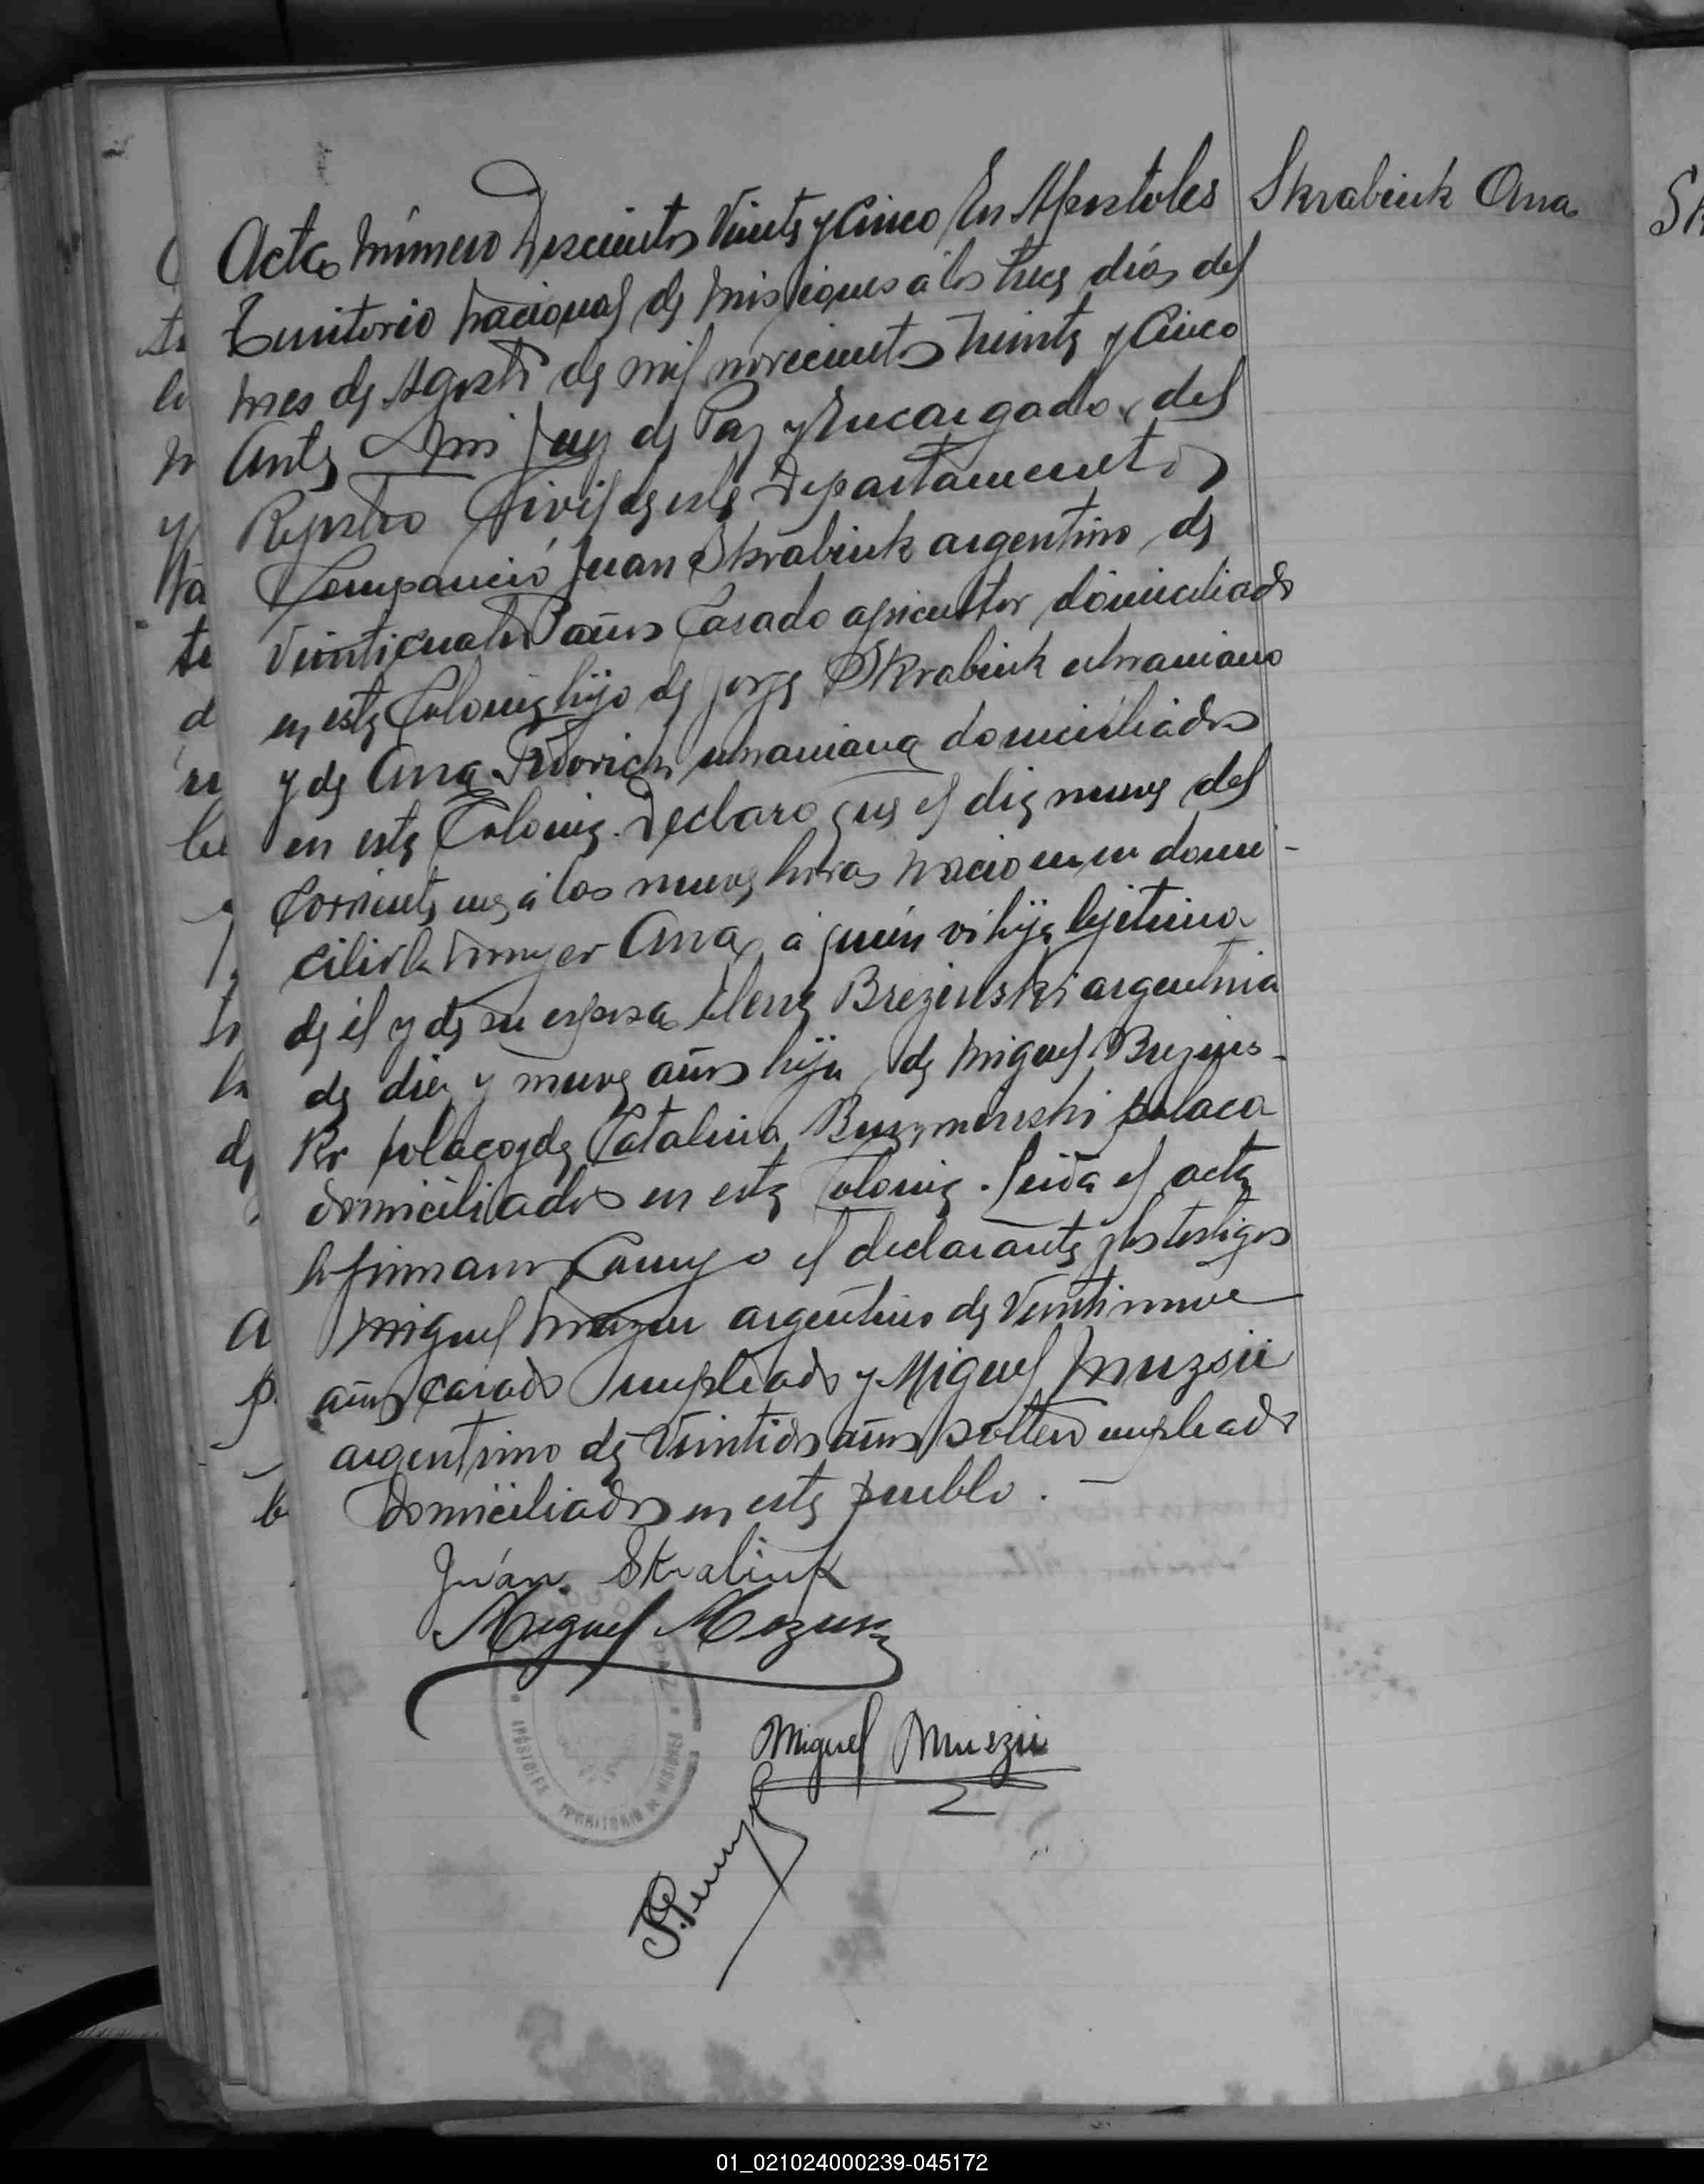 Skrabiuk Ana
Acta Número Doscientos Veinte y Cinco En Apostoles
Territorio Nacional de Misiones a los trece días del
mes de Agosto de mil novecientos treinta y Cinco
Ante Mi Juez de Paz y Encargado del
Registro Civil de este Departamento
Compareció Juan Skrabiuk argentino de
Veinticuatro años Casado agricultor domiciliado
en esta Colonia hijo de Jorge Skrabiuk ukraniano
y de Ana ukraniana domiciliados
en esta Colonia. Declaro que el dia nueve del
Corriente mes á las nueve horas nacio en su domi-
cilio la mujer Ana, a quién vi hija lejitima
de él y de su esposa Elena Brezinski argentina
de diez y nueve años hija de Miguel Brezins-
ki polaco y de Catalina polaca
domiciliados en esta Colonia. Leida el acta
la firmaron Conmigo el declarante y los testigos
Miguel Mazur argentino de Veintinueve
años casado empleado y Miguel Muzsii
argentino de Veintidos años soltero empleado
Domiciliados en este pueblo.
Juán Skrabiuk
Miguel Mozur
Miguel Muezii
APOSTOLES TERRITORIO DE MISIONES
01_021024000239-045172